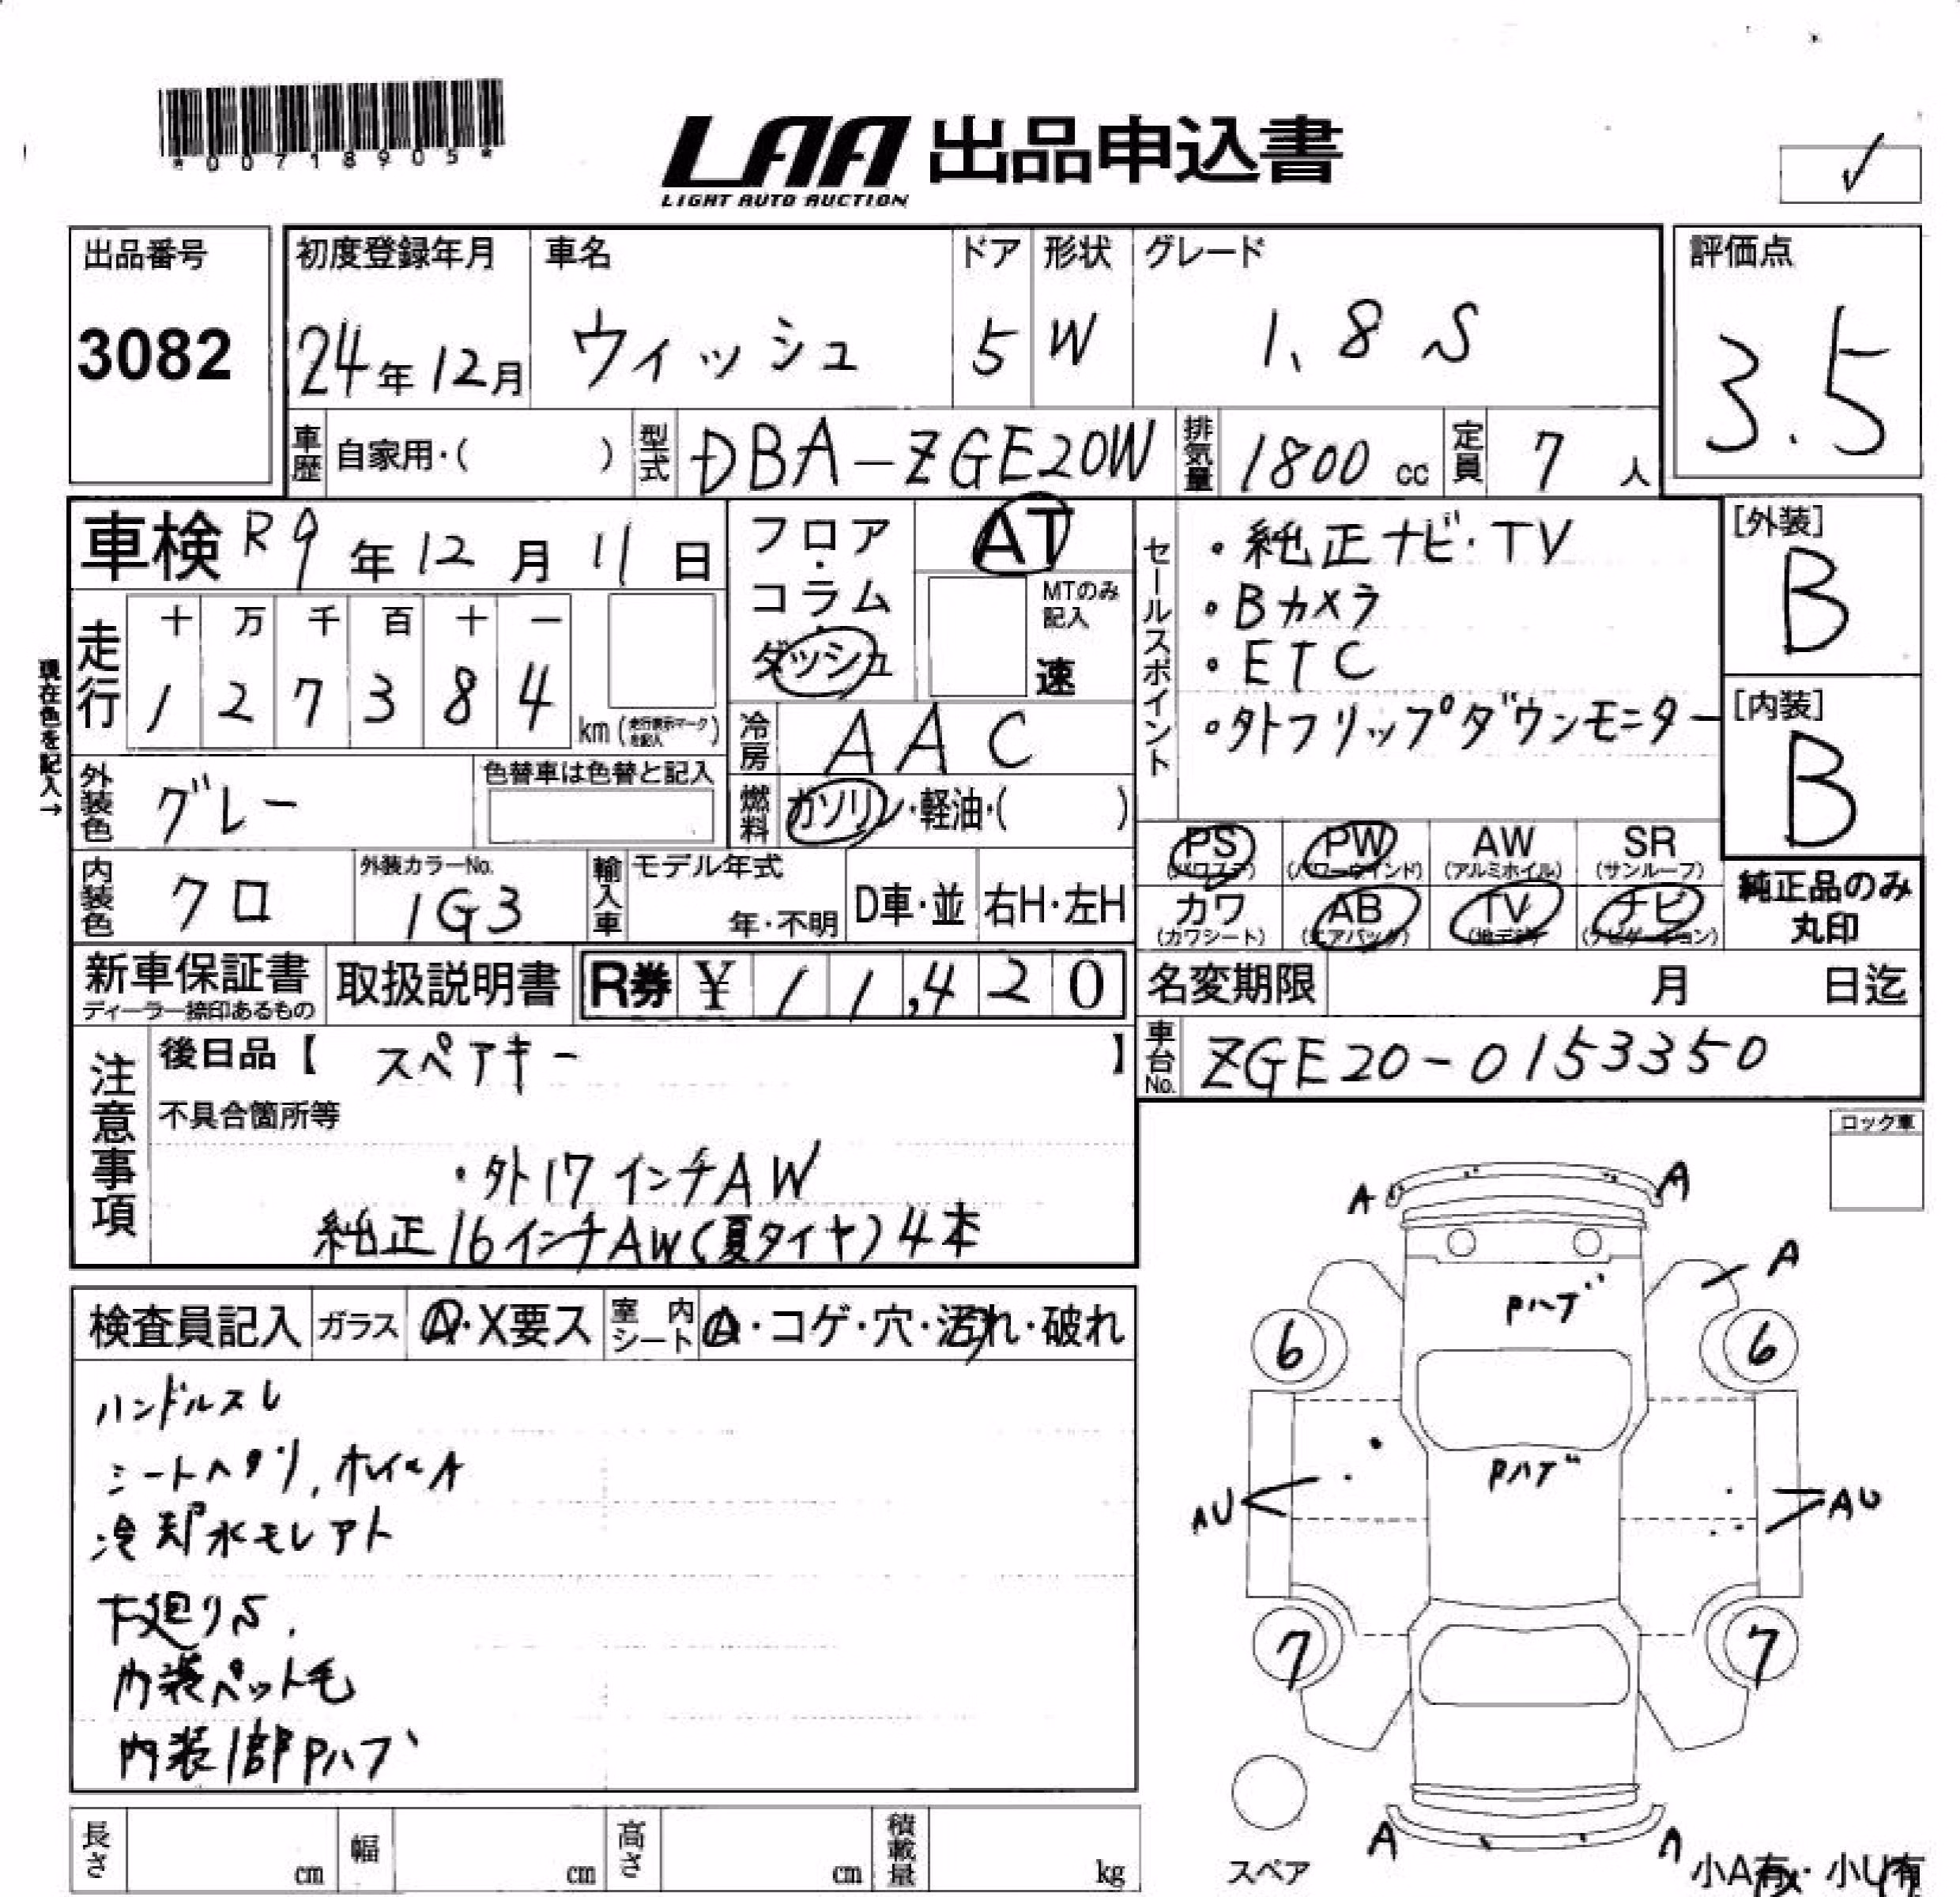 *00718905*
LAA 出品申込書
LIGHT AUTO AUCTION
✓
出品番号
3082
初度登録年月
24年12月
車名
ウィッシュ
ドア
5
形状
W
グレード
1.8 S
評価点
3.5
車歴 自家用・( )
型式 DBA-ZGE20W
排気量 1800 cc
定員 7 人
車検 R9年12月11日
現在色を記入→
走行
十 万 千 百 十 一
1 2 7 3 8 4 km (走行表示マークを記入)
フロア・コラム・ダッシュ
AT
MTのみ記入
速
冷房 AAC
燃料 ガソリン・軽油・( )
外装色 グレー
色替車は色替と記入
内装色 クロ
外装カラーNo.
1G3
輸入車 モデル年式
年・不明 D車・並 右H・左H
セールスポイント
・純正ナビ・TV
・Bカメラ
・ETC
・外フリップダウンモニター
[外装]
B
[内装]
B
PS (パワステ) PW (パワーウインド) AW (アルミホイル) SR (サンルーフ)
カワ (カワシート) AB (エアバック) TV (地デジ) ナビ (ナビゲーション)
純正品のみ丸印
新車保証書
ディーラー捺印あるもの
取扱説明書
R券 ¥ 11,420
名変期限 月 日迄
車台No. ZGE20-0153350
注意事項
後日品【 スペアキー 】
不具合箇所等
・外17インチAW
純正16インチAW(夏タイヤ)4本
ロック車
検査員記入 ガラス A・X要ス 室内シート A・コゲ・穴・汚れ・破れ
ハンドルスレ
シートヘタリ,ホイールA
冷却水モレアト
下廻りS.
内装ペット毛
内装1部Pハゲ
A A
A
Pハゲ
6 6
Pハゲ
AU AU
7 7
A A
スペア
小A有・小U有
長さ cm 幅 cm 高さ cm 積載量 kg